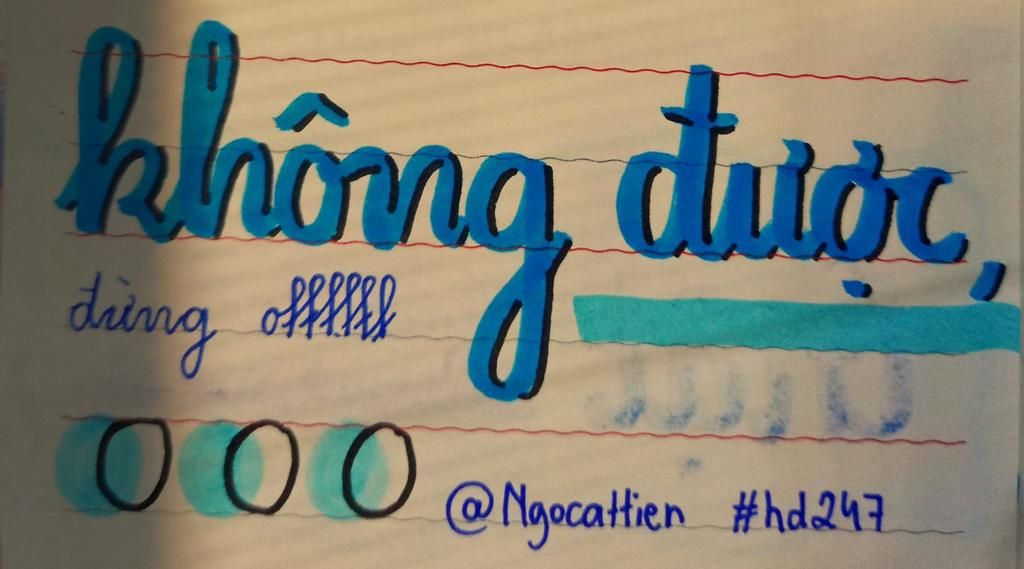 không được,
dừng offffff
O O O
@Ngocattien #hd247